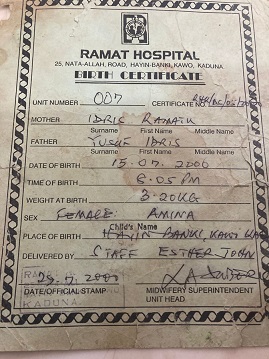 RAMAT HOSPITAL
25, NATA-ALLAH, ROAD, HAYIN-BANKI, KAWO, KADUNA
BIRTH CERTIFICATE
UNIT NUMBER 007 CERTIFICATE NO.
MOTHER IDRIS RAMATU
Surname First Name Middle Name
FATHER YUSUF IDRIS
Surname First Name Middle Name
DATE OF BIRTH 15.07.2000
TIME OF BIRTH 6:05 PM
WEIGHT AT BIRTH 3.20KG
SEX FEMALE: AMINA
Child's Name
PLACE OF BIRTH HAYIN BANKI, KAWO
DELIVERED BY STAFF ESTHER JOHN
DATE/OFFICIAL STAMP MIDWIFERY SUPERINTENDENT
KADUNA UNIT HEAD